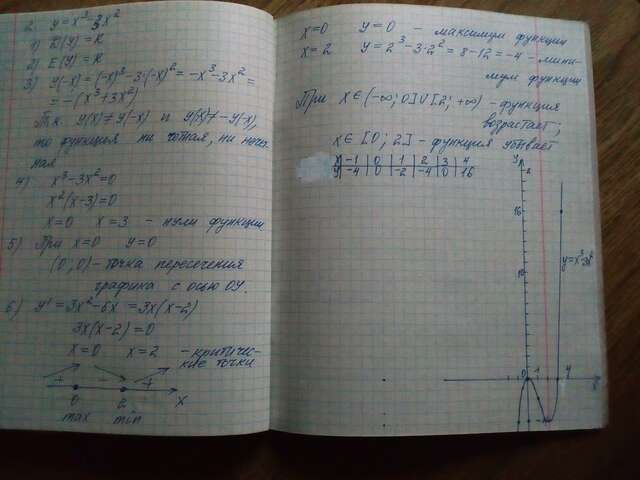 2. y = x³ - 3x²
1) D(y) = R
2) E(y) = R
3) y(-x) = (-x)³ - 3·(-x)² = -x³ - 3x² =
= -(x³ + 3x²)
Т.к. y(x) ≠ y(-x) и y(x) ≠ -y(-x),
то функция ни чётная, ни нечёт-
ная
4) x³ - 3x² = 0
x²(x-3) = 0
x = 0 x = 3 - нули функции
5) При x = 0 y = 0
(0; 0) - точка пересечения
графика с осью OY.
6) y' = 3x² - 6x = 3x(x-2)
3x(x-2) = 0
x = 0 x = 2 - критиче-
ские точки
+ - +
0 2 x
max min
x = 0 y = 0 - максимум функции
x = 2 y = 2³ - 3·2² = 8 - 12 = -4 - мини-
мум функции
При x ∈ (-∞; 0] ∪ [2; +∞) - функция
возрастает;
x ∈ [0; 2] - функция убывает
x -1 0 1 2 3 4
y -4 0 -2 -4 0 16
y
16
10
y = x³-3x²
0 1 4